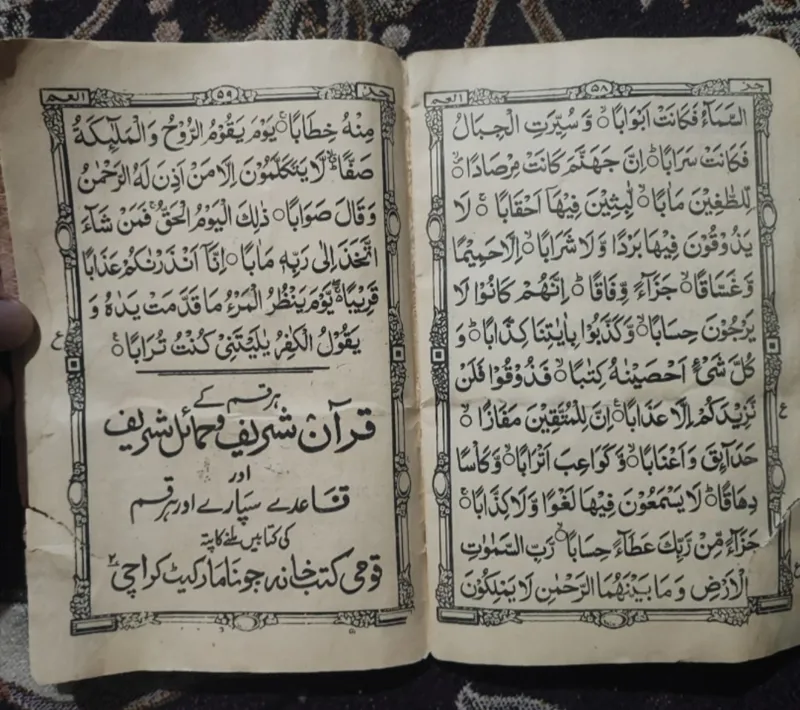 جز
۵۸
العم
السَّمَآءُ فَكَانَتْ اَبْوَابًا ۙ وَّ سُيِّرَتِ الْجِبَالُ
فَكَانَتْ سَرَابًا ؕ اِنَّ جَهَنَّمَ كَانَتْ مِرْصَادًا ۙ
لِّلطّٰغِيْنَ مَاٰبًا ۙ لّٰبِثِيْنَ فِيْهَآ اَحْقَابًا ۚ لَا
يَذُوْقُوْنَ فِيْهَا بَرْدًا وَّ لَا شَرَابًا ۙ اِلَّا حَمِيْمًا
وَّ غَسَّاقًا ۙ جَزَآءً وِّفَاقًا ؕ اِنَّهُمْ كَانُوْا لَا
يَرْجُوْنَ حِسَابًا ۙ وَّ كَذَّبُوْا بِاٰيٰتِنَا كِذَّابًا ؕ وَ
كُلَّ شَيْءٍ اَحْصَيْنٰهُ كِتٰبًا ۙ فَذُوْقُوْا فَلَنْ
نَّزِيْدَكُمْ اِلَّا عَذَابًا ۠ اِنَّ لِلْمُتَّقِيْنَ مَفَازًا ۙ
ع
حَدَآئِقَ وَ اَعْنَابًا ۙ وَّ كَوَاعِبَ اَتْرَابًا ۙ وَّ كَاْسًا
دِهَاقًا ؕ لَا يَسْمَعُوْنَ فِيْهَا لَغْوًا وَّ لَا كِذّٰبًا ۚ
جَزَآءً مِّنْ رَّبِّكَ عَطَآءً حِسَابًا ۙ رَّبِّ السَّمٰوٰتِ
الْاَرْضِ وَ مَا بَيْنَهُمَا الرَّحْمٰنِ لَا يَمْلِكُوْنَ
جز
۵۹
العم
مِنْهُ خِطَابًا ۚ يَوْمَ يَقُوْمُ الرُّوْحُ وَ الْمَلٰٓئِكَةُ
صَفًّا ؕۙ لَّا يَتَكَلَّمُوْنَ اِلَّا مَنْ اَذِنَ لَهُ الرَّحْمٰنُ
وَ قَالَ صَوَابًا ۞ ذٰلِكَ الْيَوْمُ الْحَقُّ ۚ فَمَنْ شَآءَ
اتَّخَذَ اِلٰى رَبِّهٖ مَاٰبًا ۞ اِنَّآ اَنْذَرْنٰكُمْ عَذَابًا
قَرِيْبًا ۚۖ يَّوْمَ يَنْظُرُ الْمَرْءُ مَا قَدَّمَتْ يَدٰهُ وَ
يَقُوْلُ الْكٰفِرُ يٰلَيْتَنِيْ كُنْتُ تُرٰبًا ۠
ع
ہر قسم کے
قرآن شریف و حمائل شریف
اور
قاعدے سپارے اور ہر قسم
کی کتابیں ملنے کا پتہ
قومی کتب خانہ جونا مارکیٹ کراچی ۲